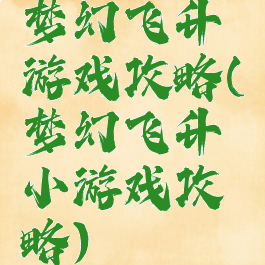 梦幻飞升
游戏攻略(
梦幻飞升
小游戏攻
略)